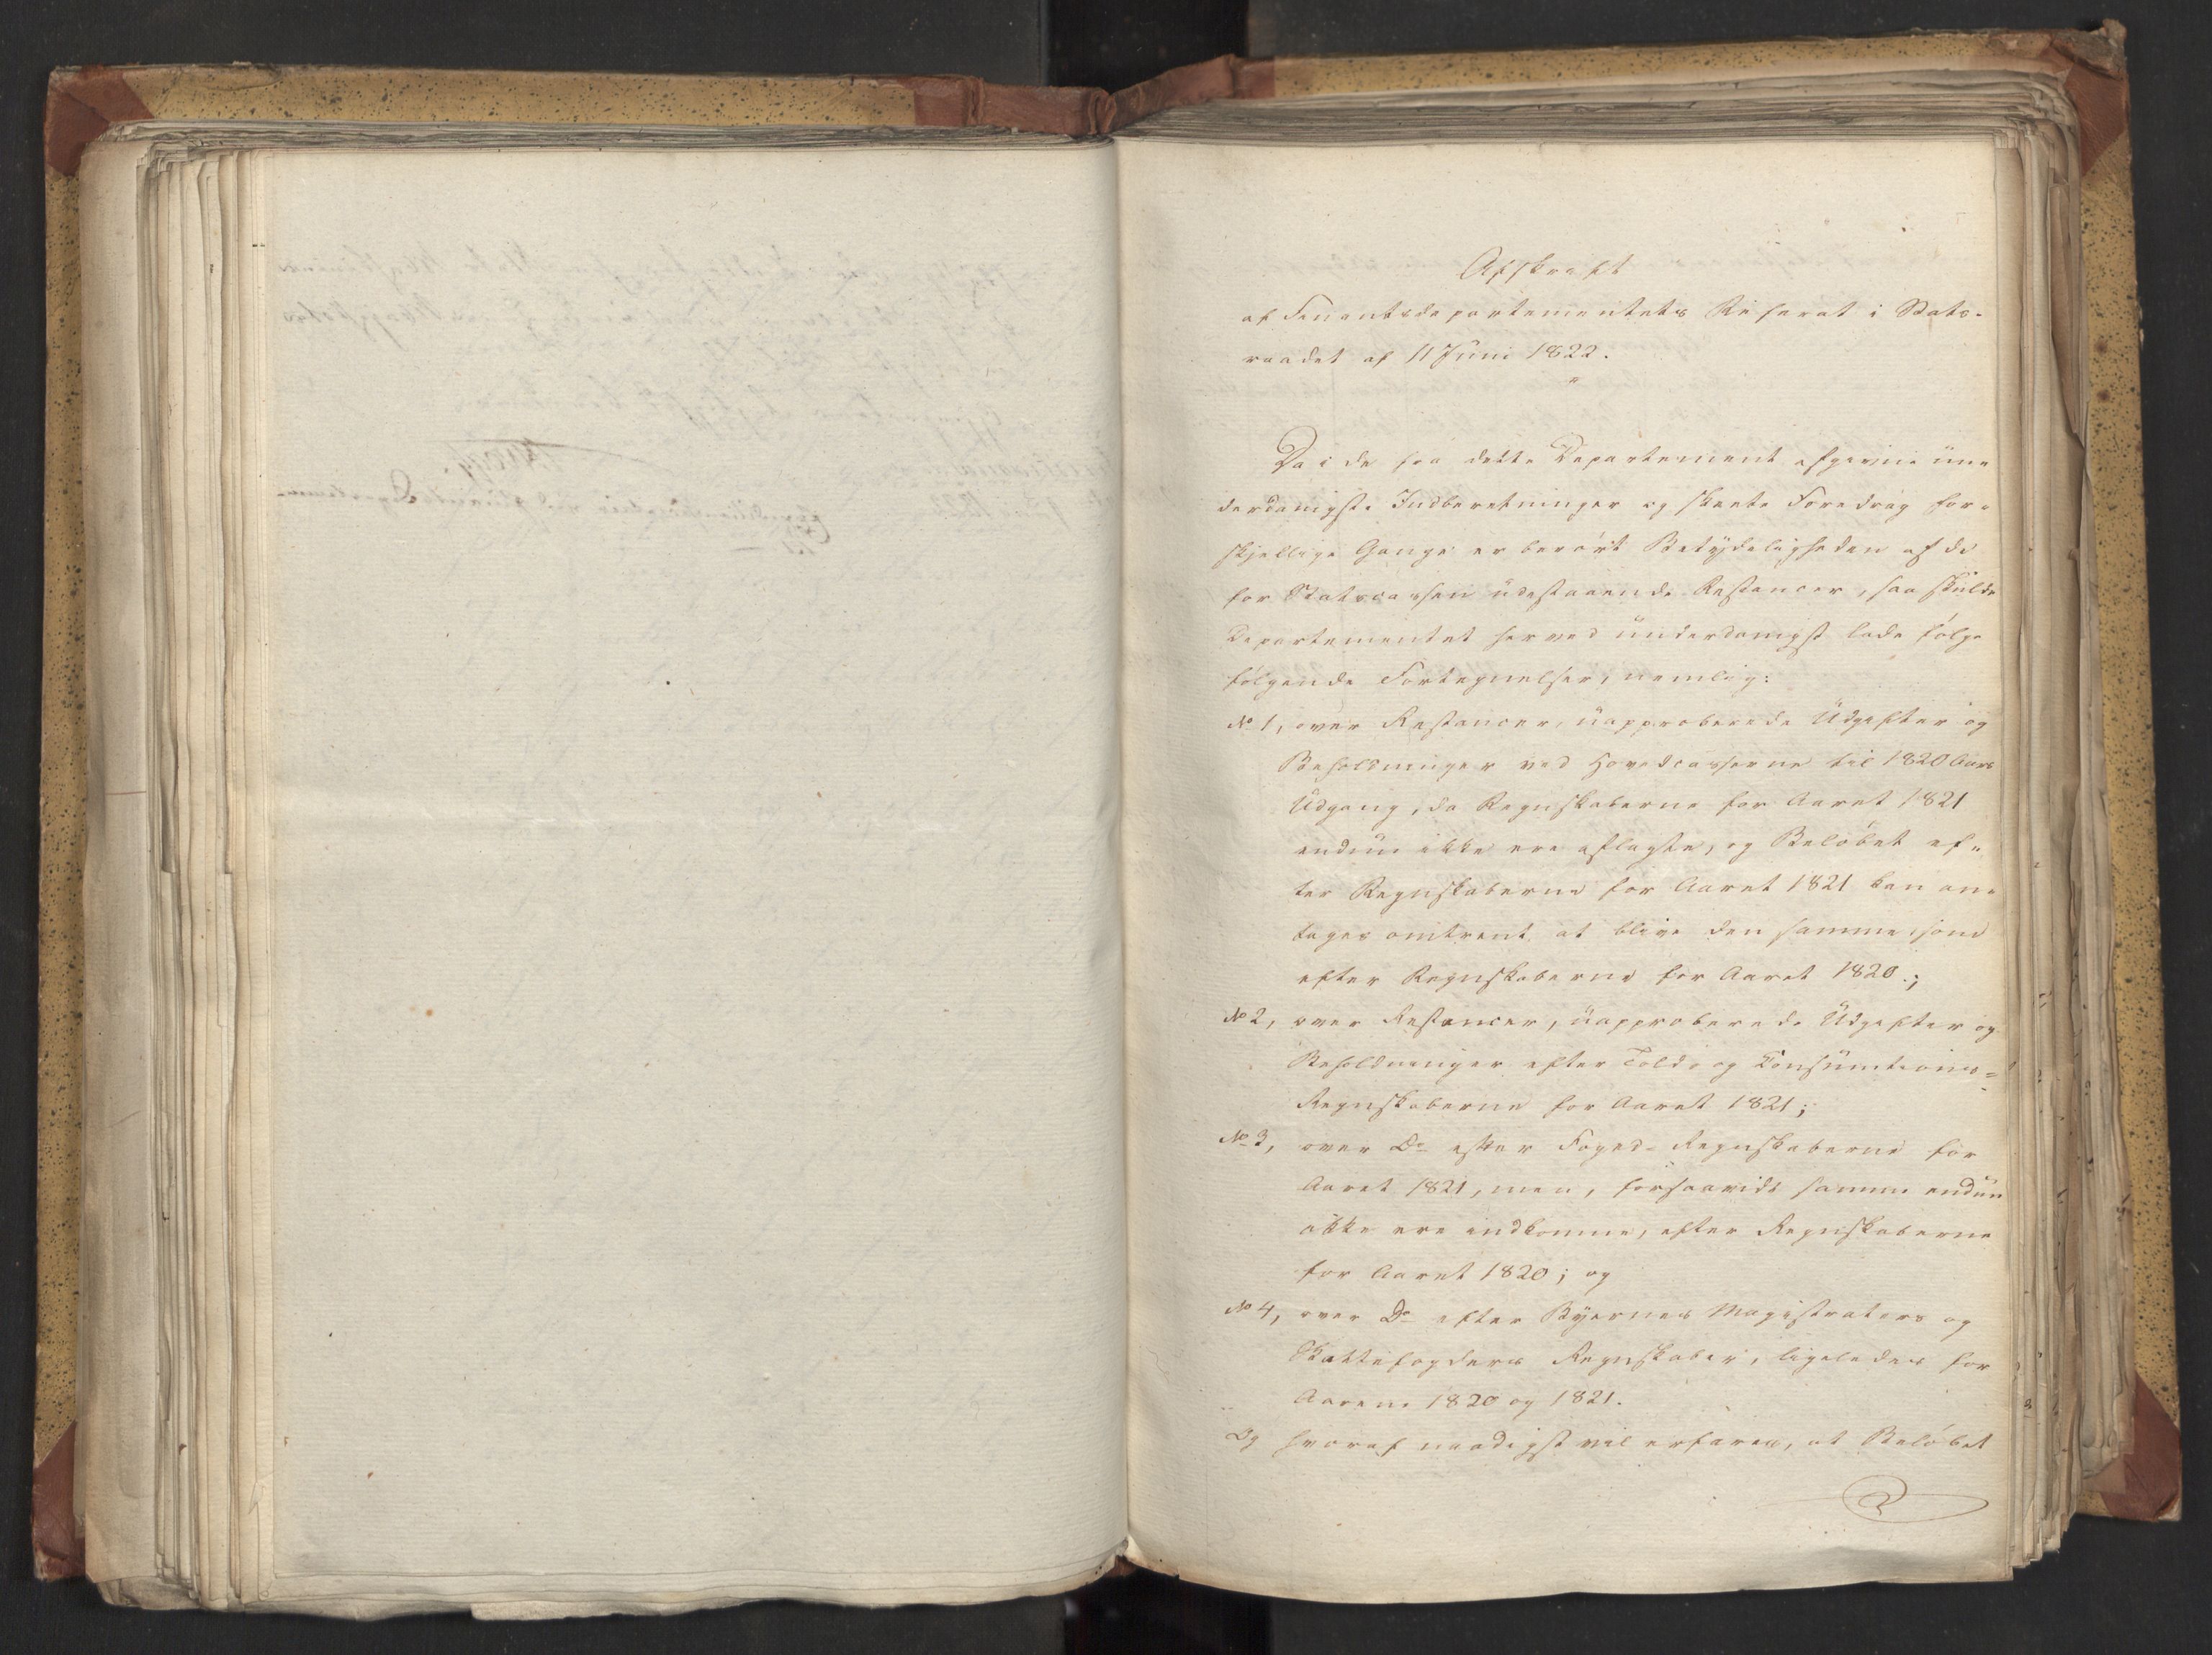 Afskrift
af Finantsdepartementets Referat i Stats-
raadet af 11 Juni 1822.
Da i de fra dette Departement afgivne un-
derdanigste Indberetninger og skeete Foredrag for-
skjellige Gange er berørt Betydeligheden af de
for Statscassen udestaaende Restancer, saa skulde
Departementet herved underdanigst lade følge
følgende Fortegnelser, nemlig:
No 1, over Restancer, uapproberede Udgifter og
Beholdninger ved Hovedcasserne til 1820 Aars
Udgang, da Regnskaberne for Aaret 1821
endnu ikke ere aflagte, og Beløbet ef-
ter Regnskaberne for Aaret 1821 kan an-
tages omtrent at blive den samme som
efter Regnskaberne for Aaret 1820.;
No 2, over Restancer, uapproberede Udgifter og
Beholdninger efter Told- og Consumtions-
Regnskaberne for Aaret 1821;
No 3, over Do efter Foged-Regnskaberne for
Aaret 1821, men, forsaavidt samme endnu
ikke ere indkomne, efter Regnskaberne
for Aaret 1820; og
No 4, over Do efter Byernes Magistraters og
Skattefogders Regnskaber, ligeledes for
Aarene 1820 og 1821.
Og hvoraf naadigst vil erfares, at Beløbet